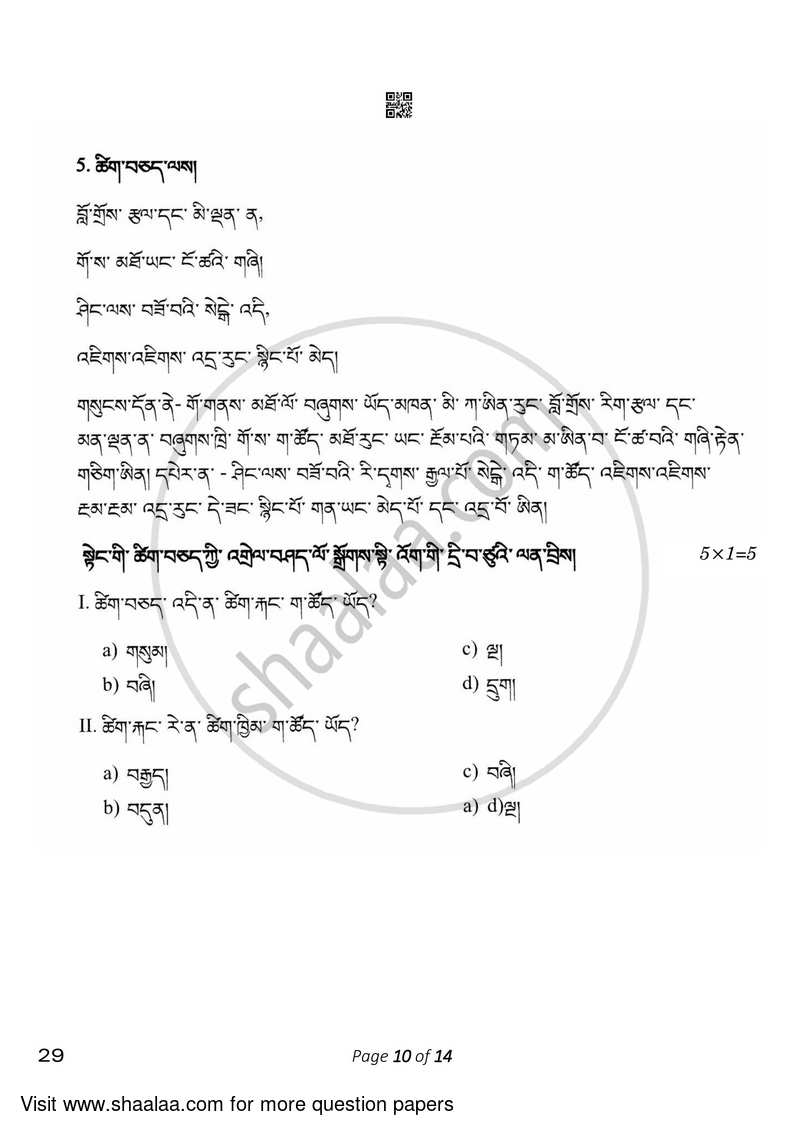 5. ཚིག་བཅད་ལས།
བློ་གྲོས་ རྩལ་དང་ མི་ལྡན་ ན,
གོ་ས་ མཐོ་ཡང་ ངོ་ཚའི་ གཞི།
ཤིང་ལས་ བཟོ་བའི་ སེངྒེ་ འདི,
འཇིགས་འཇིགས་ འདྲ་རུང་ སྙིང་པོ་ མེད།
གསུངས་དོན་ནེ- གོ་གནས་ མཐོ་ལོ་ བཞུགས་ ཡོད་མཁན་ མི་ ཀ་ཨིན་རུང་ བློ་གྲོས་ རིག་རྩལ་ དང་
མན་ལྡན་ན་ བཞུགས་ཁྲི་ གོ་ས་ ག་ཚོད་ མཐོ་རུང་ ཡང་ རྔོམ་པའི་ གཏམ་ མ་ཨིན་བ་ ངོ་ཚ་བའི་ གཞི་རྟེན་
གཅིག་ཨིན། དཔེར་ན་ - ཤིང་ལས་ བཟོ་བའི་ རི་དྭགས་ རྒྱལ་པོ་ སེངྒེ་ འདི་ ག་ཚོད་ འཇིགས་འཇིགས་
རྔམ་རྔམ་ འདྲ་རུང་ དེ་ཟང་ སྙིང་པོ་ གན་ཡང་ མེད་པོ་ དང་ འདྲ་བོ་ ཨིན།
སྟེང་གི་ ཚིག་བཅད་ཀྱི་ འགྲེལ་བཤད་ལོ་ སློགས་སྟི་ འོག་གི་ དྲི་བ་ཙུའི་ ལན་བྲིས། 5×1=5
I. ཚིག་བཅད་ འདི་ན་ ཚིག་རྐང་ ག་ཚོད་ ཡོད?
a) གསུམ། c) ལྔ།
b) བཞི། d) དྲུག།
II. ཚིག་རྐང་ རེ་ན་ ཚིག་ཁྱིམ་ ག་ཚོད་ ཡོད?
a) བརྒྱད། c) བཞི།
b) བདུན། a) d)ལྔ།
shaalaa.com
29 Page 10 of 14
Visit www.shaalaa.com for more question papers